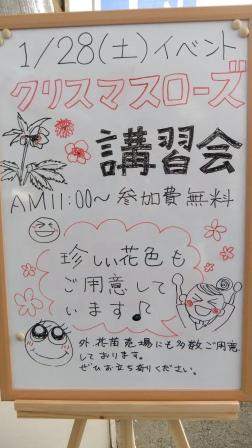 1/28(土)イベント
クリスマスローズ
講習会
AM11:00〜参加費無料
珍しい花色も
ご用意して
います♪
外、花苗売場にも多数ご用意
しております。
ぜひお立ち寄りください。